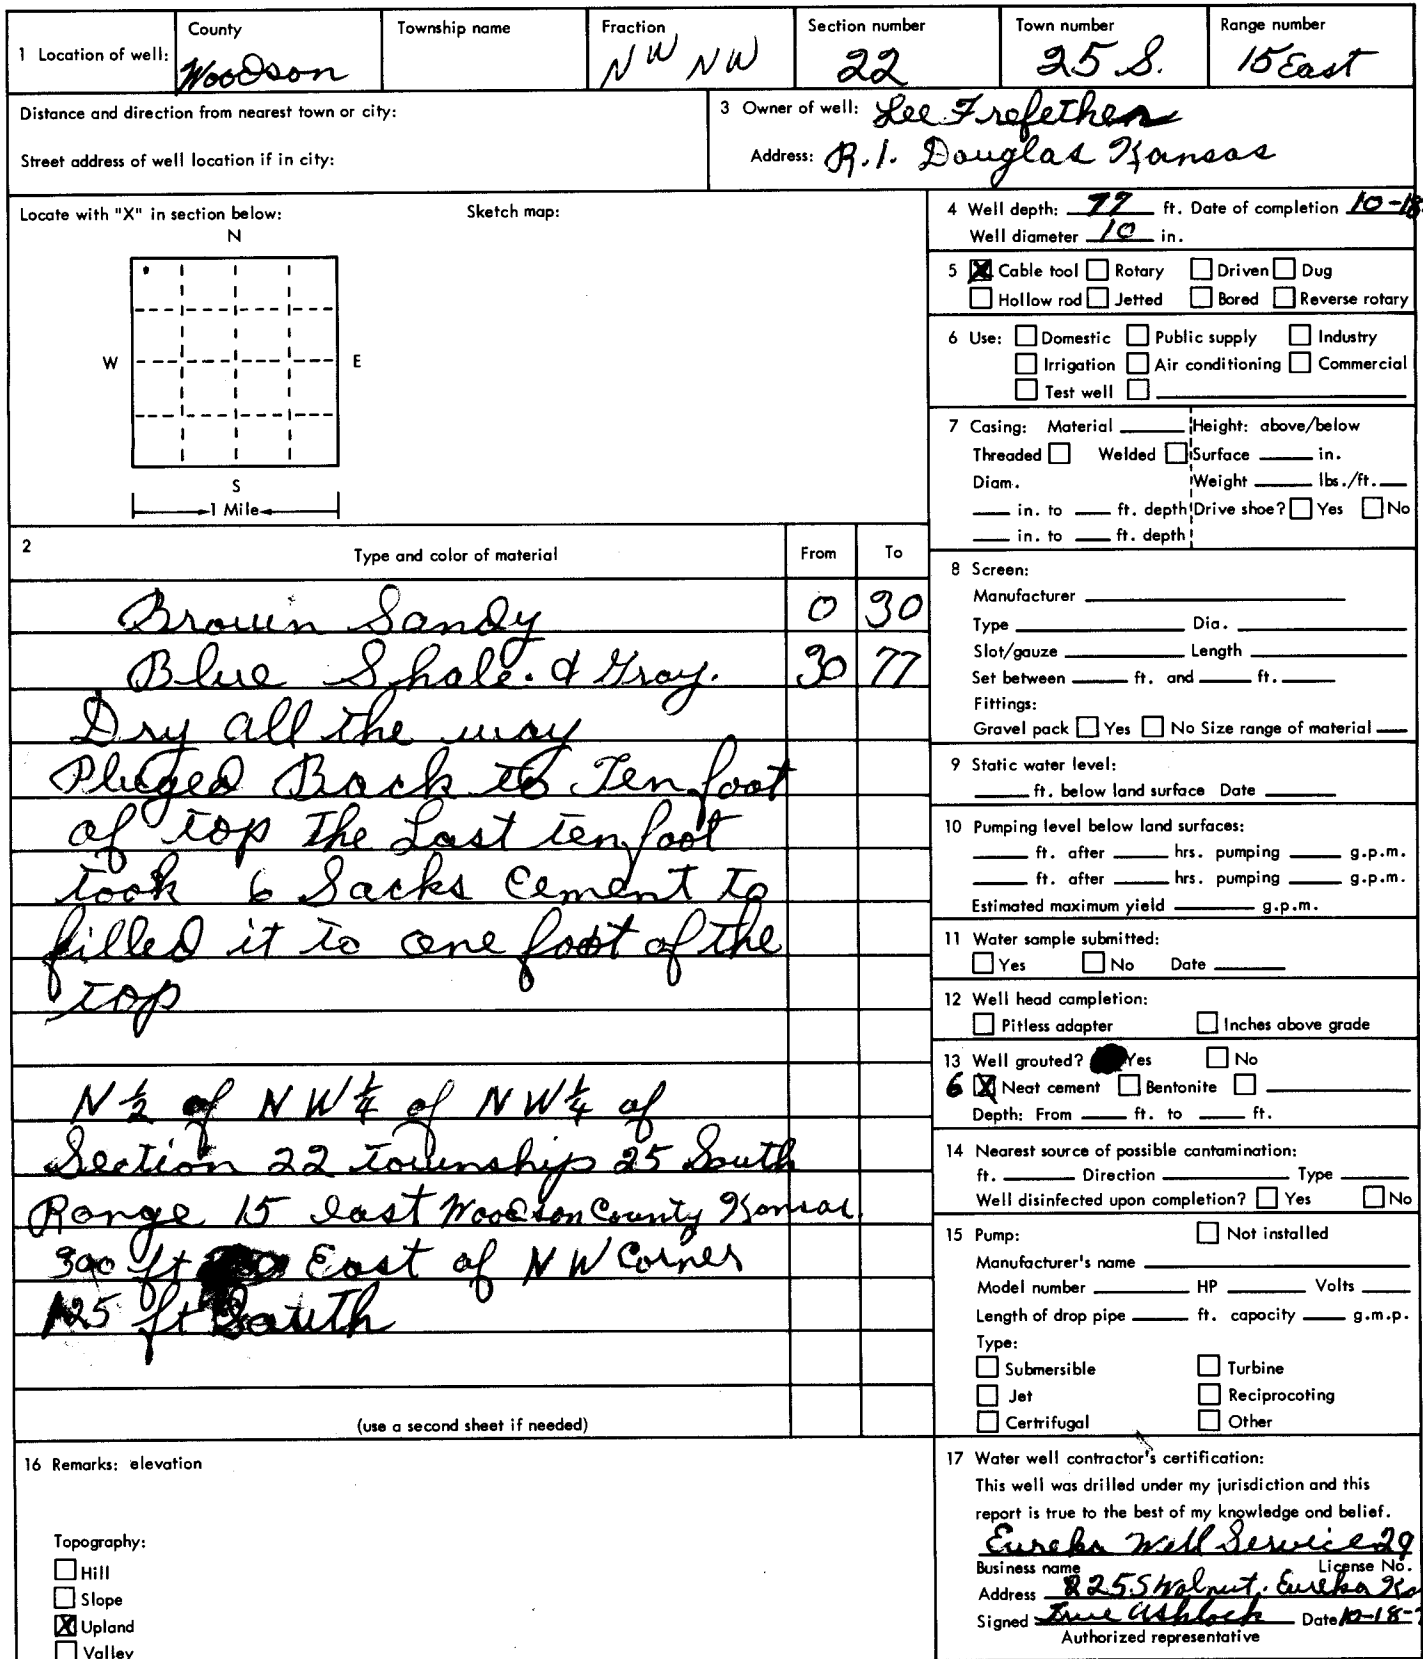 1 Location of well:
County
Woodson
Township name
Fraction
NW NW
Section number
22
Town number
25 S.
Range number
15 East
Distance and direction from nearest town or city:
Street address of well location if in city:
3 Owner of well: Lee Trefethen
Address: R.1. Douglas Kansas
Locate with "X" in section below:
Sketch map:
N
W E
S
1 Mile
2 Type and color of material From To
Brown Sandy 0 30
Blue Shale. & Gray. 30 77
Dry all the way
Pluged Back to Ten foot
of top The Last ten foot
took 6 Sacks Cement to
filled it to one foot of the
top
N ½ of NW ¼ of NW ¼ of
Section 22 township 25 South
Range 15 East Woodson County Kansas.
300 ft East of NW Corner
125 ft South
(use a second sheet if needed)
16 Remarks: elevation
Topography:
Hill
Slope
Upland
Valley
4 Well depth: 77 ft. Date of completion 10-18
Well diameter 10 in.
5 Cable tool Rotary Driven Dug
Hollow rod Jetted Bored Reverse rotary
6 Use: Domestic Public supply Industry
Irrigation Air conditioning Commercial
Test well
7 Casing: Material Height: above/below
Threaded Welded Surface in.
Diam. Weight lbs./ft.
in. to ft. depth Drive shoe? Yes No
in. to ft. depth
8 Screen:
Manufacturer
Type Dia.
Slot/gauze Length
Set between ft. and ft.
Fittings:
Gravel pack Yes No Size range of material
9 Static water level:
ft. below land surface Date
10 Pumping level below land surfaces:
ft. after hrs. pumping g.p.m.
ft. after hrs. pumping g.p.m.
Estimated maximum yield g.p.m.
11 Water sample submitted:
Yes No Date
12 Well head completion:
Pitless adapter Inches above grade
13 Well grouted? Yes No
6 Neat cement Bentonite
Depth: From ft. to ft.
14 Nearest source of possible cantamination:
ft. Direction Type
Well disinfected upon completion? Yes No
15 Pump: Not installed
Manufacturer's name
Model number HP Volts
Length of drop pipe ft. capacity g.m.p.
Type:
Submersible Turbine
Jet Reciprocoting
Certrifugal Other
17 Water well contractor's certification:
This well was drilled under my jurisdiction and this
report is true to the best of my knowledge ond belief.
Eureka Well Service 29
Business name License No.
Address 825 S Walnut. Eureka
Signed True Ashlock Date 10-18-
Authorized representative